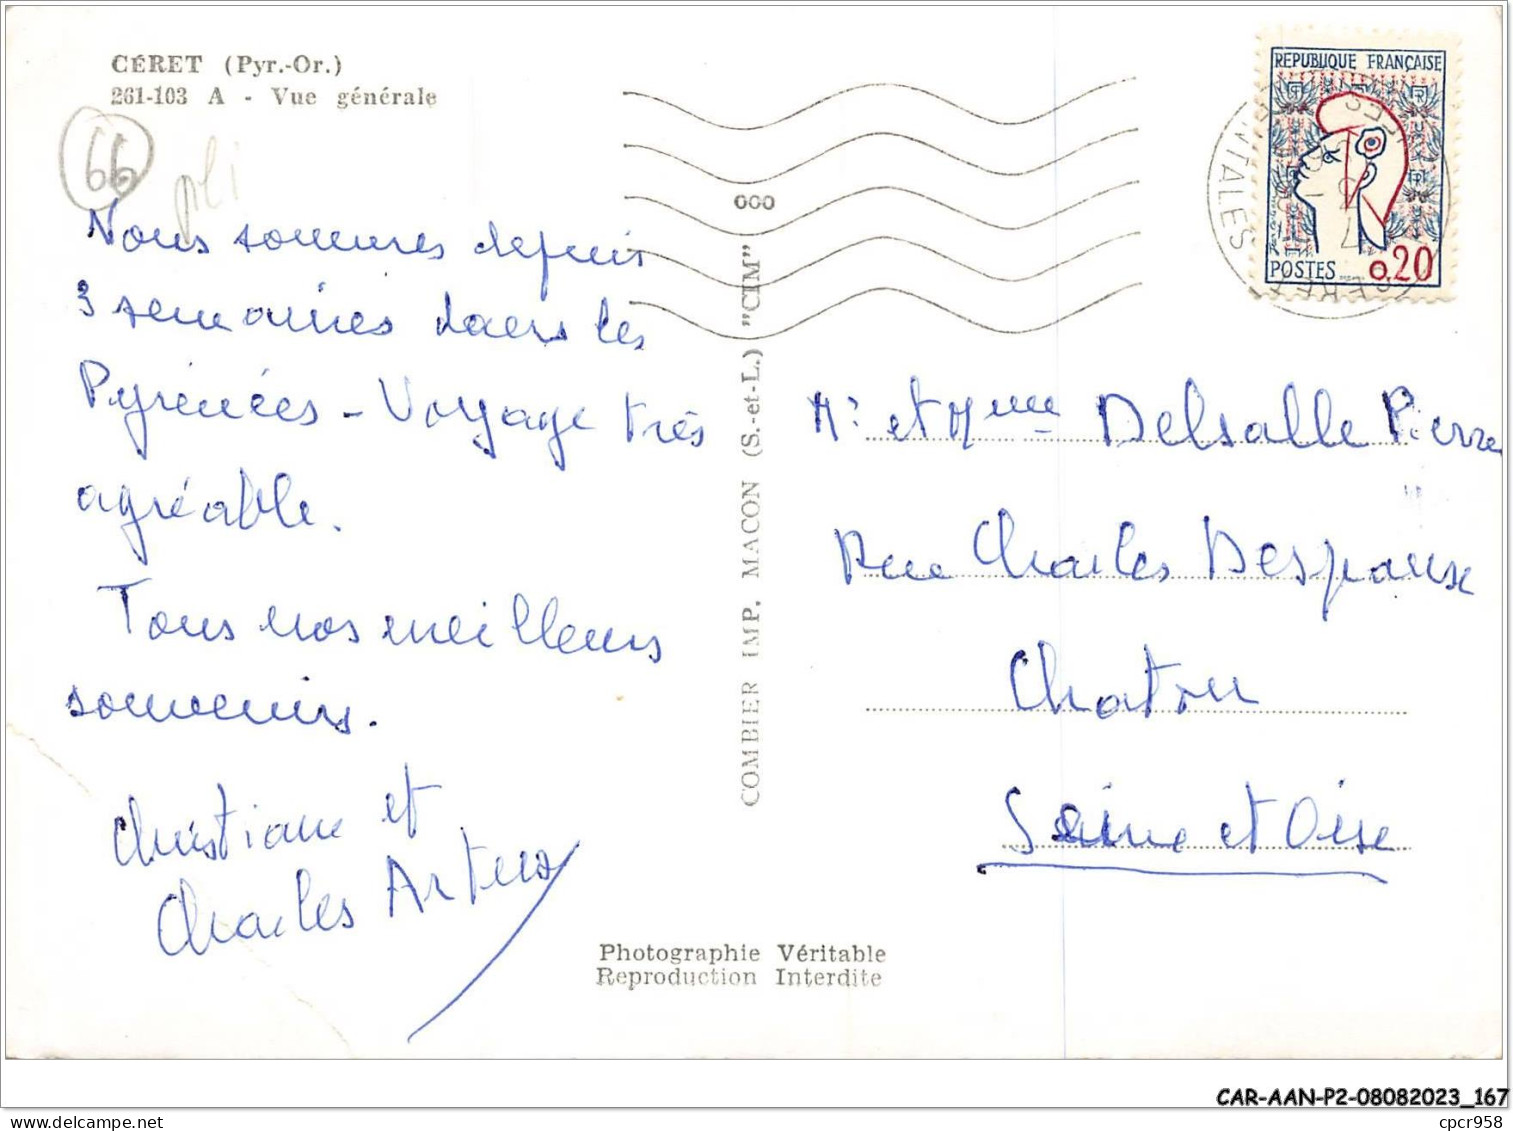 CÉRET (Pyr.-Or.)
261-103 A - Vue générale
66
pli
Nous sommes depuis
3 semaines dans les
Pyrénées - Voyage très
agréable.
Tous nos meilleurs
souvenirs.
Christiane et
Charles Artus
COMBIER IMP. MACON (S.-et-L.) "CIM"
000
REPUBLIQUE FRANÇAISE
POSTES 0,20
CERET
Mr et Mme Delsalle Pierre
Rue Charles Despaux
Chatou
Seine et Oise
Photographie Véritable
Reproduction Interdite
CAR-AAN-P2-08082023_167
delcampe.net
cpcr958